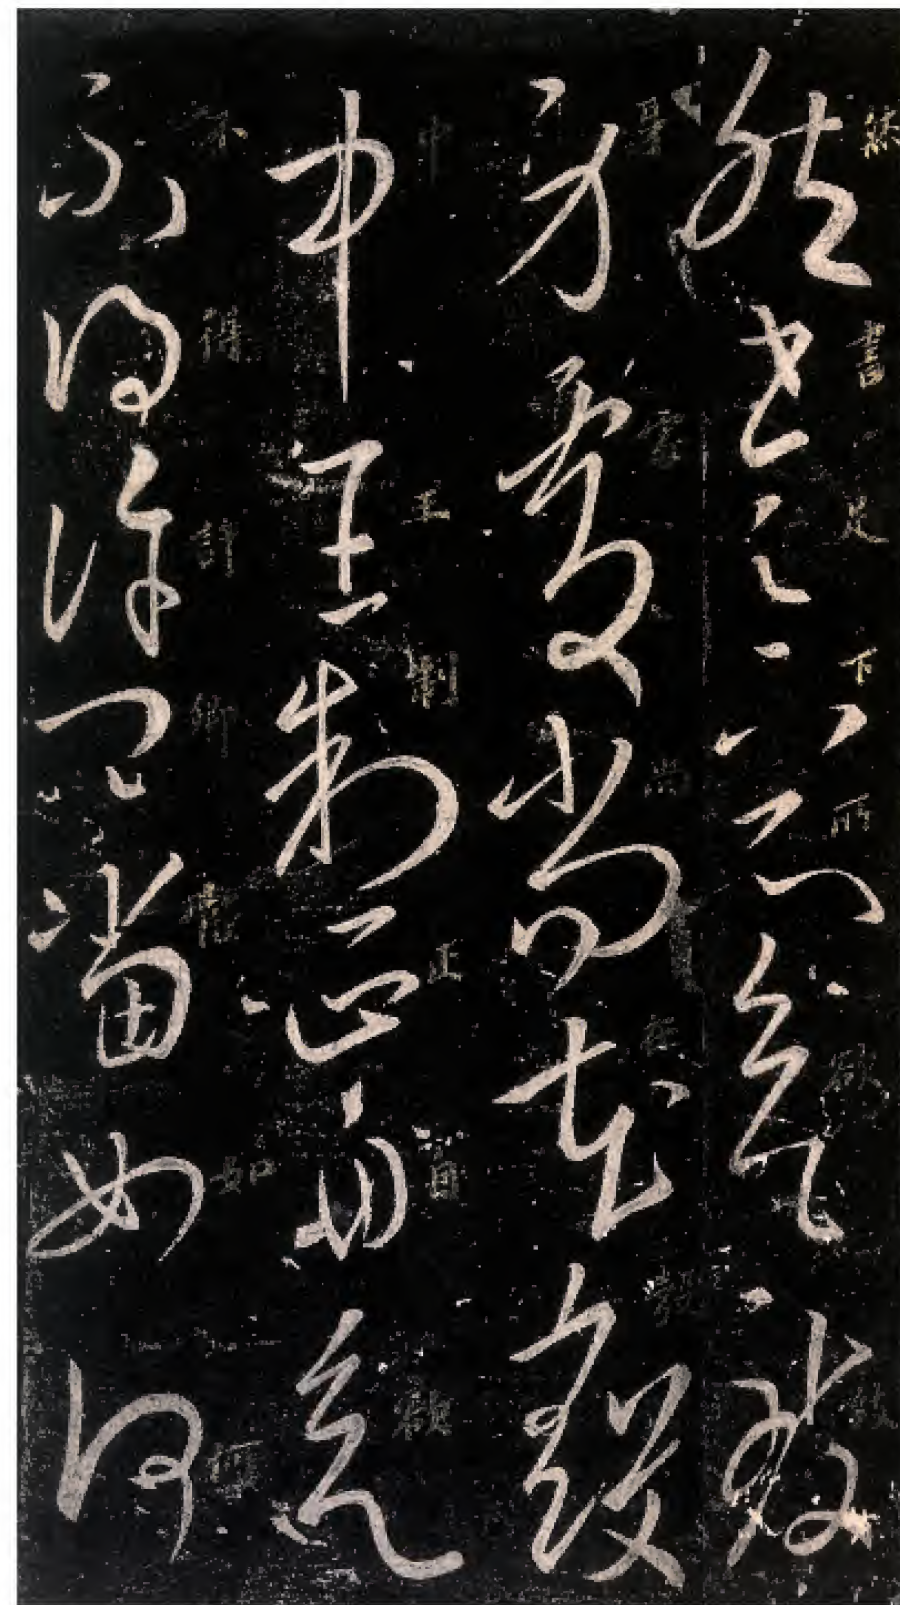 然書足下所欲致
處尚在彀
中王制正自
不得許卿當如何